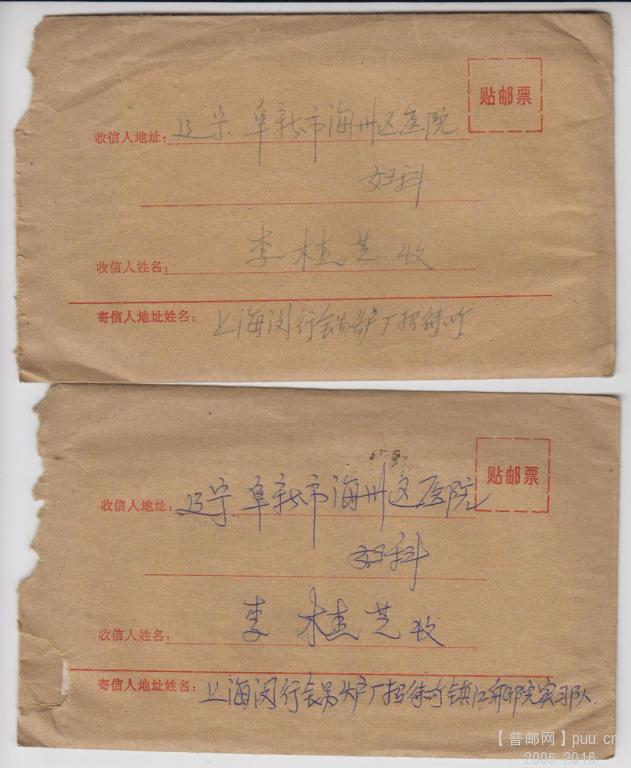 贴邮票
收信人地址：辽宁阜新市海州区医院
妇科
收信人姓名：李桂芝收
寄信人地址姓名：上海闵行锅炉厂招待所
贴邮票
收信人地址：辽宁阜新市海州区医院
妇科
收信人姓名：李桂芝收
寄信人地址姓名：上海闵行锅炉厂招待所镇江船院实习队
【普邮网】puu.cn
2005-2016